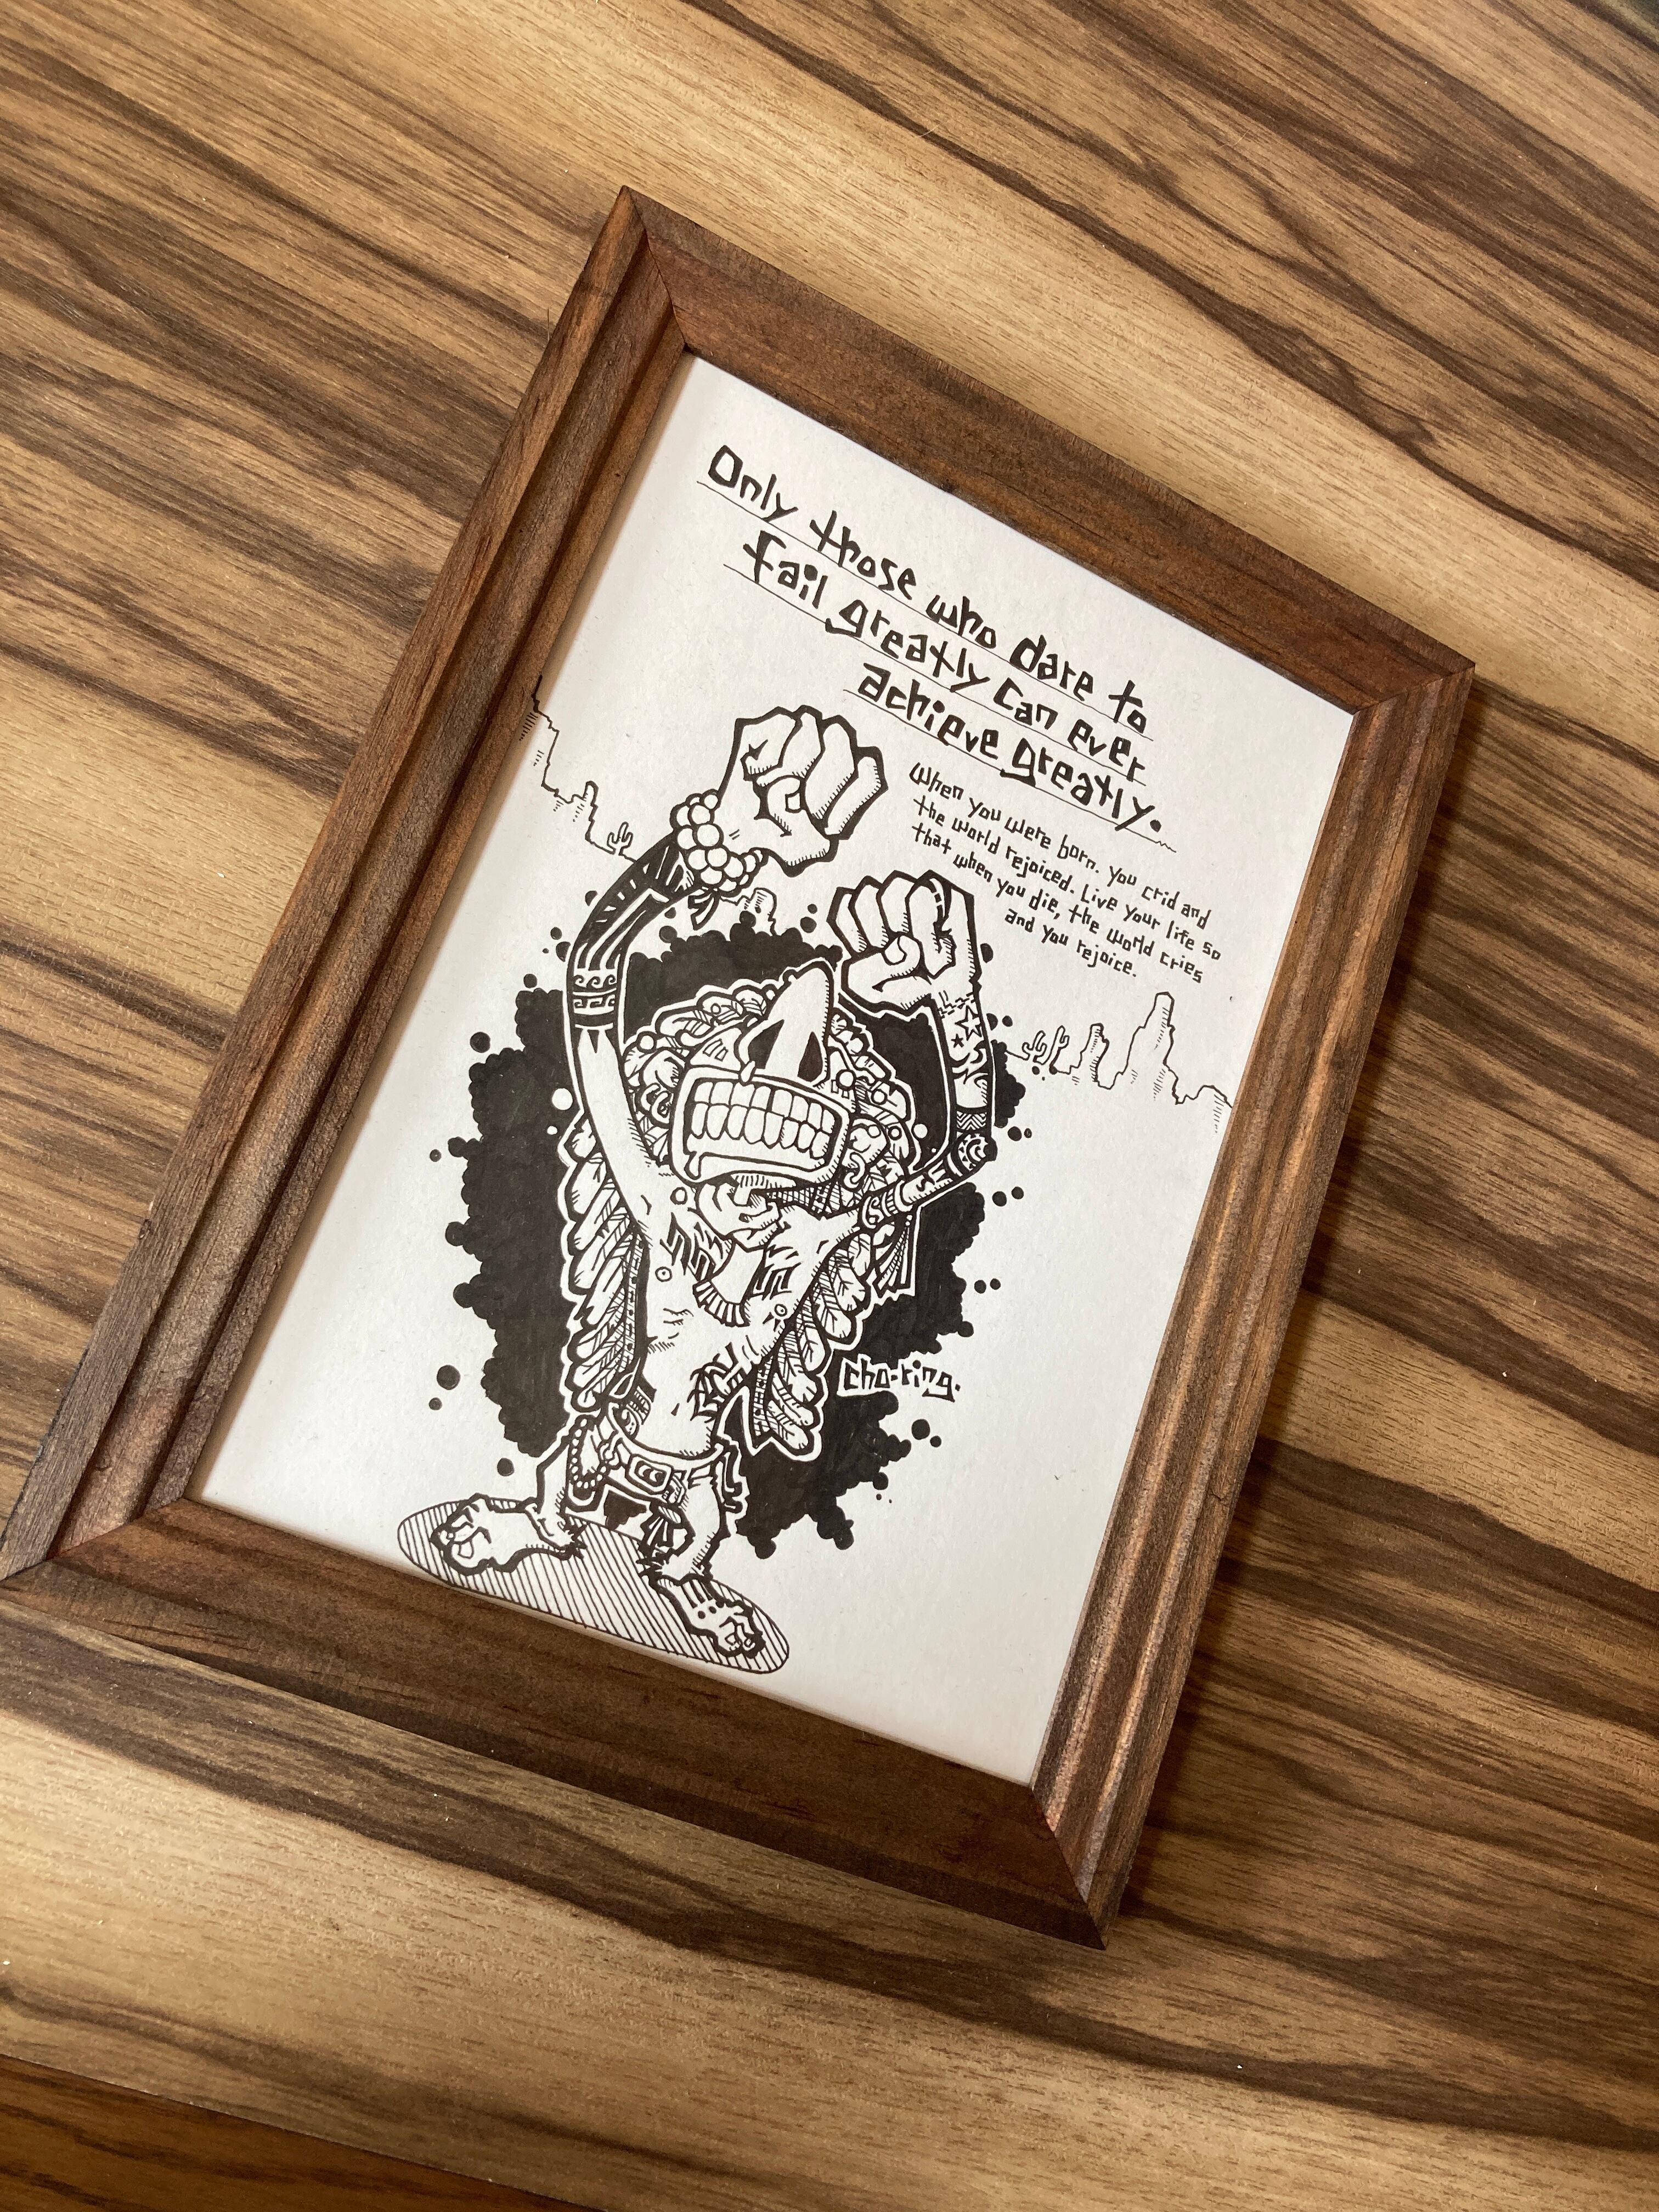 Only those who dare to
Fail greatly can ever
achieve greatly.
When you were born. you crid and
the world rejoiced. Live your life so
that when you die, the world cries
and you rejoice.
cho-ring.